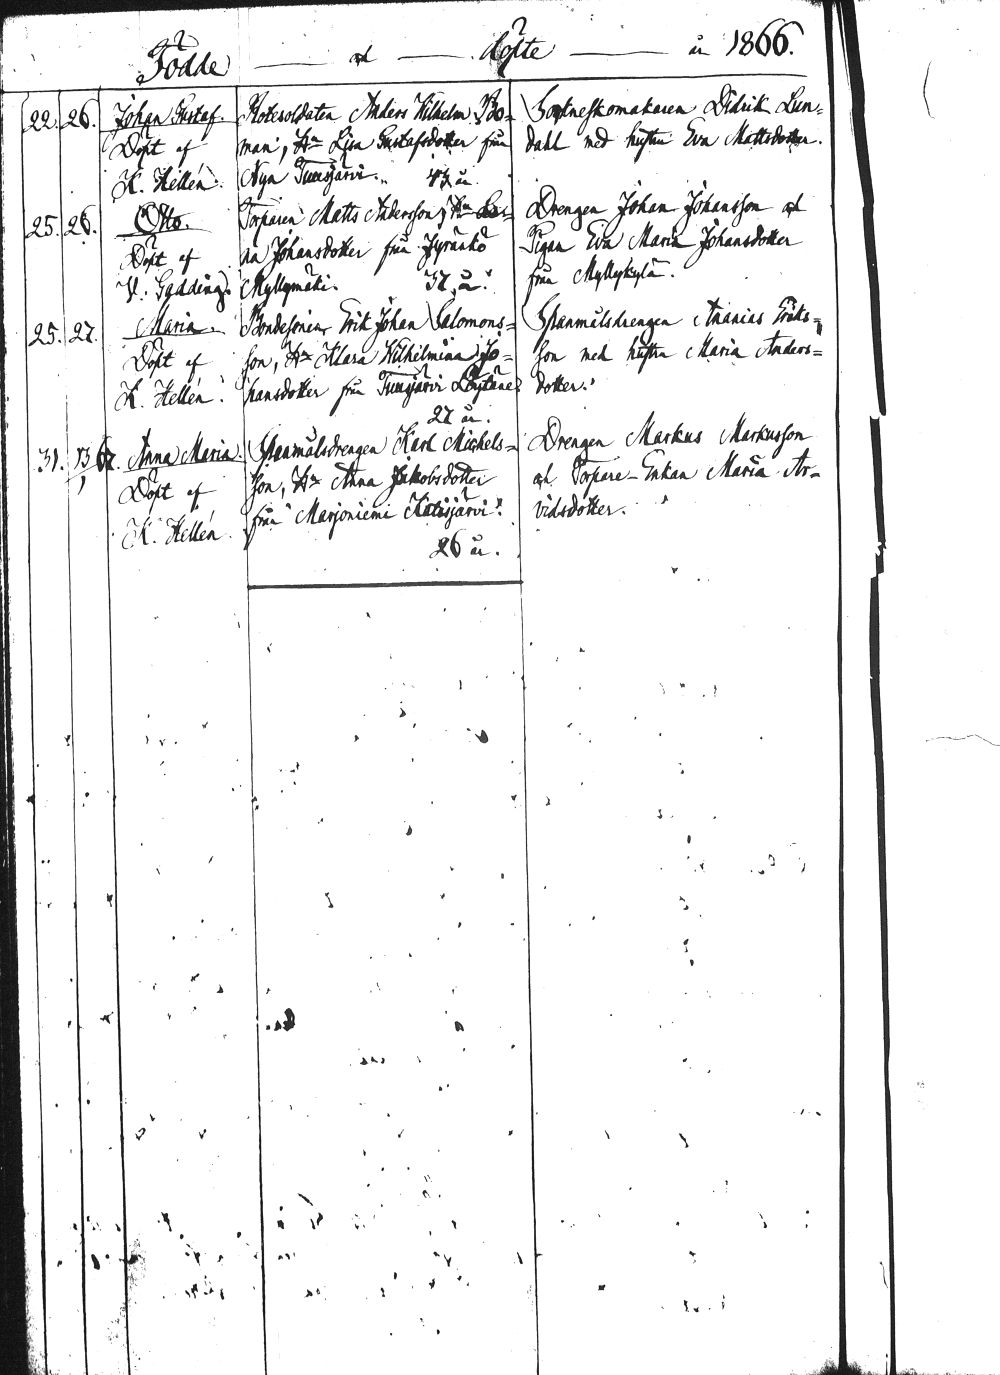 Födde och döpte år 1866.
22. 26. Johan Gustaf.
Döpt af
K. Hellén.
Rotesoldaten Anders Wilhelm Bo-
man, Hu Lisa Gustafsdotter från
Nya Tuusjärvi. 43 år.
Sockneskomakaren Didrik Lun-
dahl med hustru Eva Mattsdotter.
25. 26. Otto.
Döpt af
V. Gadding.
Torparen Matts Andersson, Hu
na Johansdotter från Jyränkö
Myllymäki. 37 år.
Drengen Johan Johansson och
Pigan Eva Maria Johansdotter
från Myllykylä.
25. 27. Maria.
Döpt af
K. Hellén.
Bondesonen Erik Johan Salomons-
son, Hu Klara Wilhelmina Jo-
hansdotter från Tuusjärvi
27 år.
Spanmålsdrengen Ananias Eriks-
son med hustru Maria Anders-
dotter.
31. 13/67. Anna Maria.
Döpt af
K. Hellén
Spanmålsdrengen Karl Michels-
son, Hu Anna Jakobsdotter
från Marjoniemi
26 år.
Drengen Markus Markusson
och Torpare-Enkan Maria Ar-
vidsdotter.